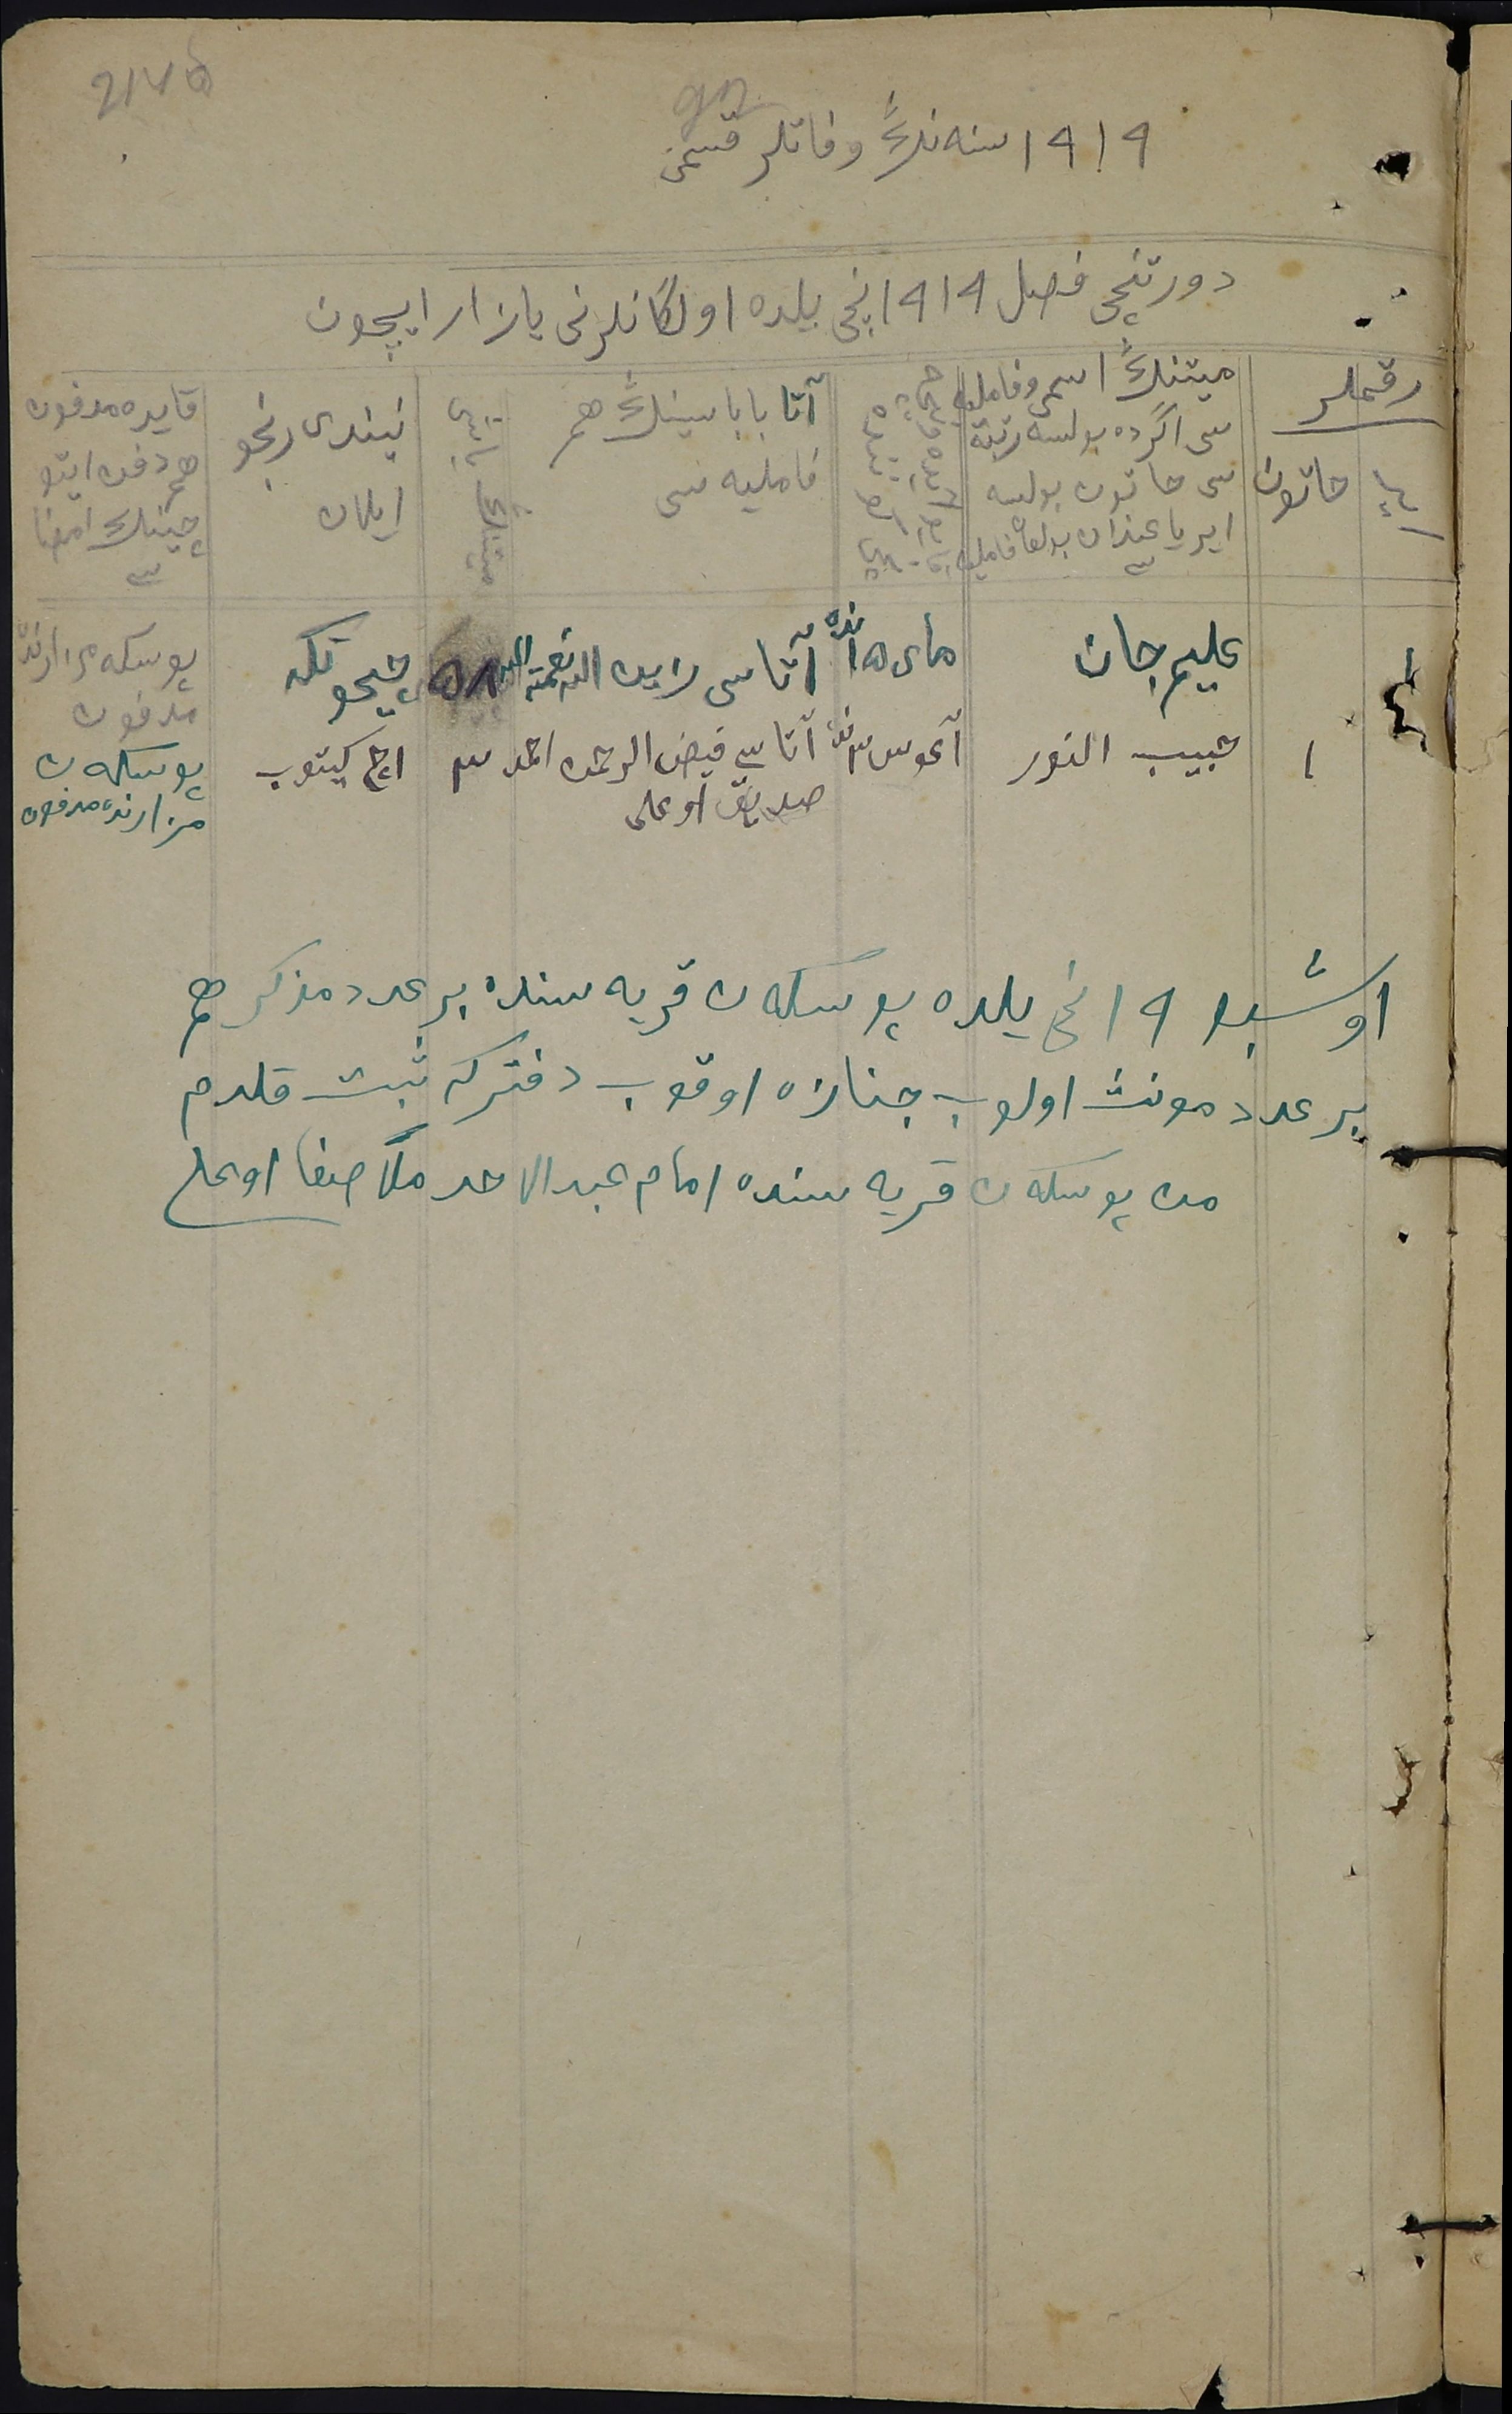 ١٩١٩ سنه ننڭ وفاتلر قسمی
دورتنچی فصل ١٩١٩ نچی یلده اولگانلرنی یازار ایچون
رقملر
ایر
خاتون
میتننڭ اسمی وفامیلیه
سی اگرده بولسه رتبة
سی خاتون بولسه
ایر یا عیندان بولغان فامیلیه
سی
آتا باباسیننڭ هم
فاملیه سی
میتننڭ یاشی
نیندی رنجو
ایلان
قایده مدفون
هم دفن ایتو
چیننڭ امضا
سی
١
علیم جان
مای ١٥ نده
آتاسی زاین الدین نعمة الدین
چیچوتکه
پوسکه ن مزارنده
مدفون
١
حبیب النور
آغوس ٣ نده
آتاسی فیض الرحمن احمد
صدیق اوغلی
٣
اچ کیتوب
پوسکه ن
مزارنده مدفون
اوشبو ١٩ نچی یلده پوسکه ن قریه سنده بر عدد مذکر هم
بر عدد مونث اولوب جنازه اوقوب دفترکه ثبت قلدم
من پوسکه ن قریه سنده امام عبد الاحد ملا صفا اوغلی